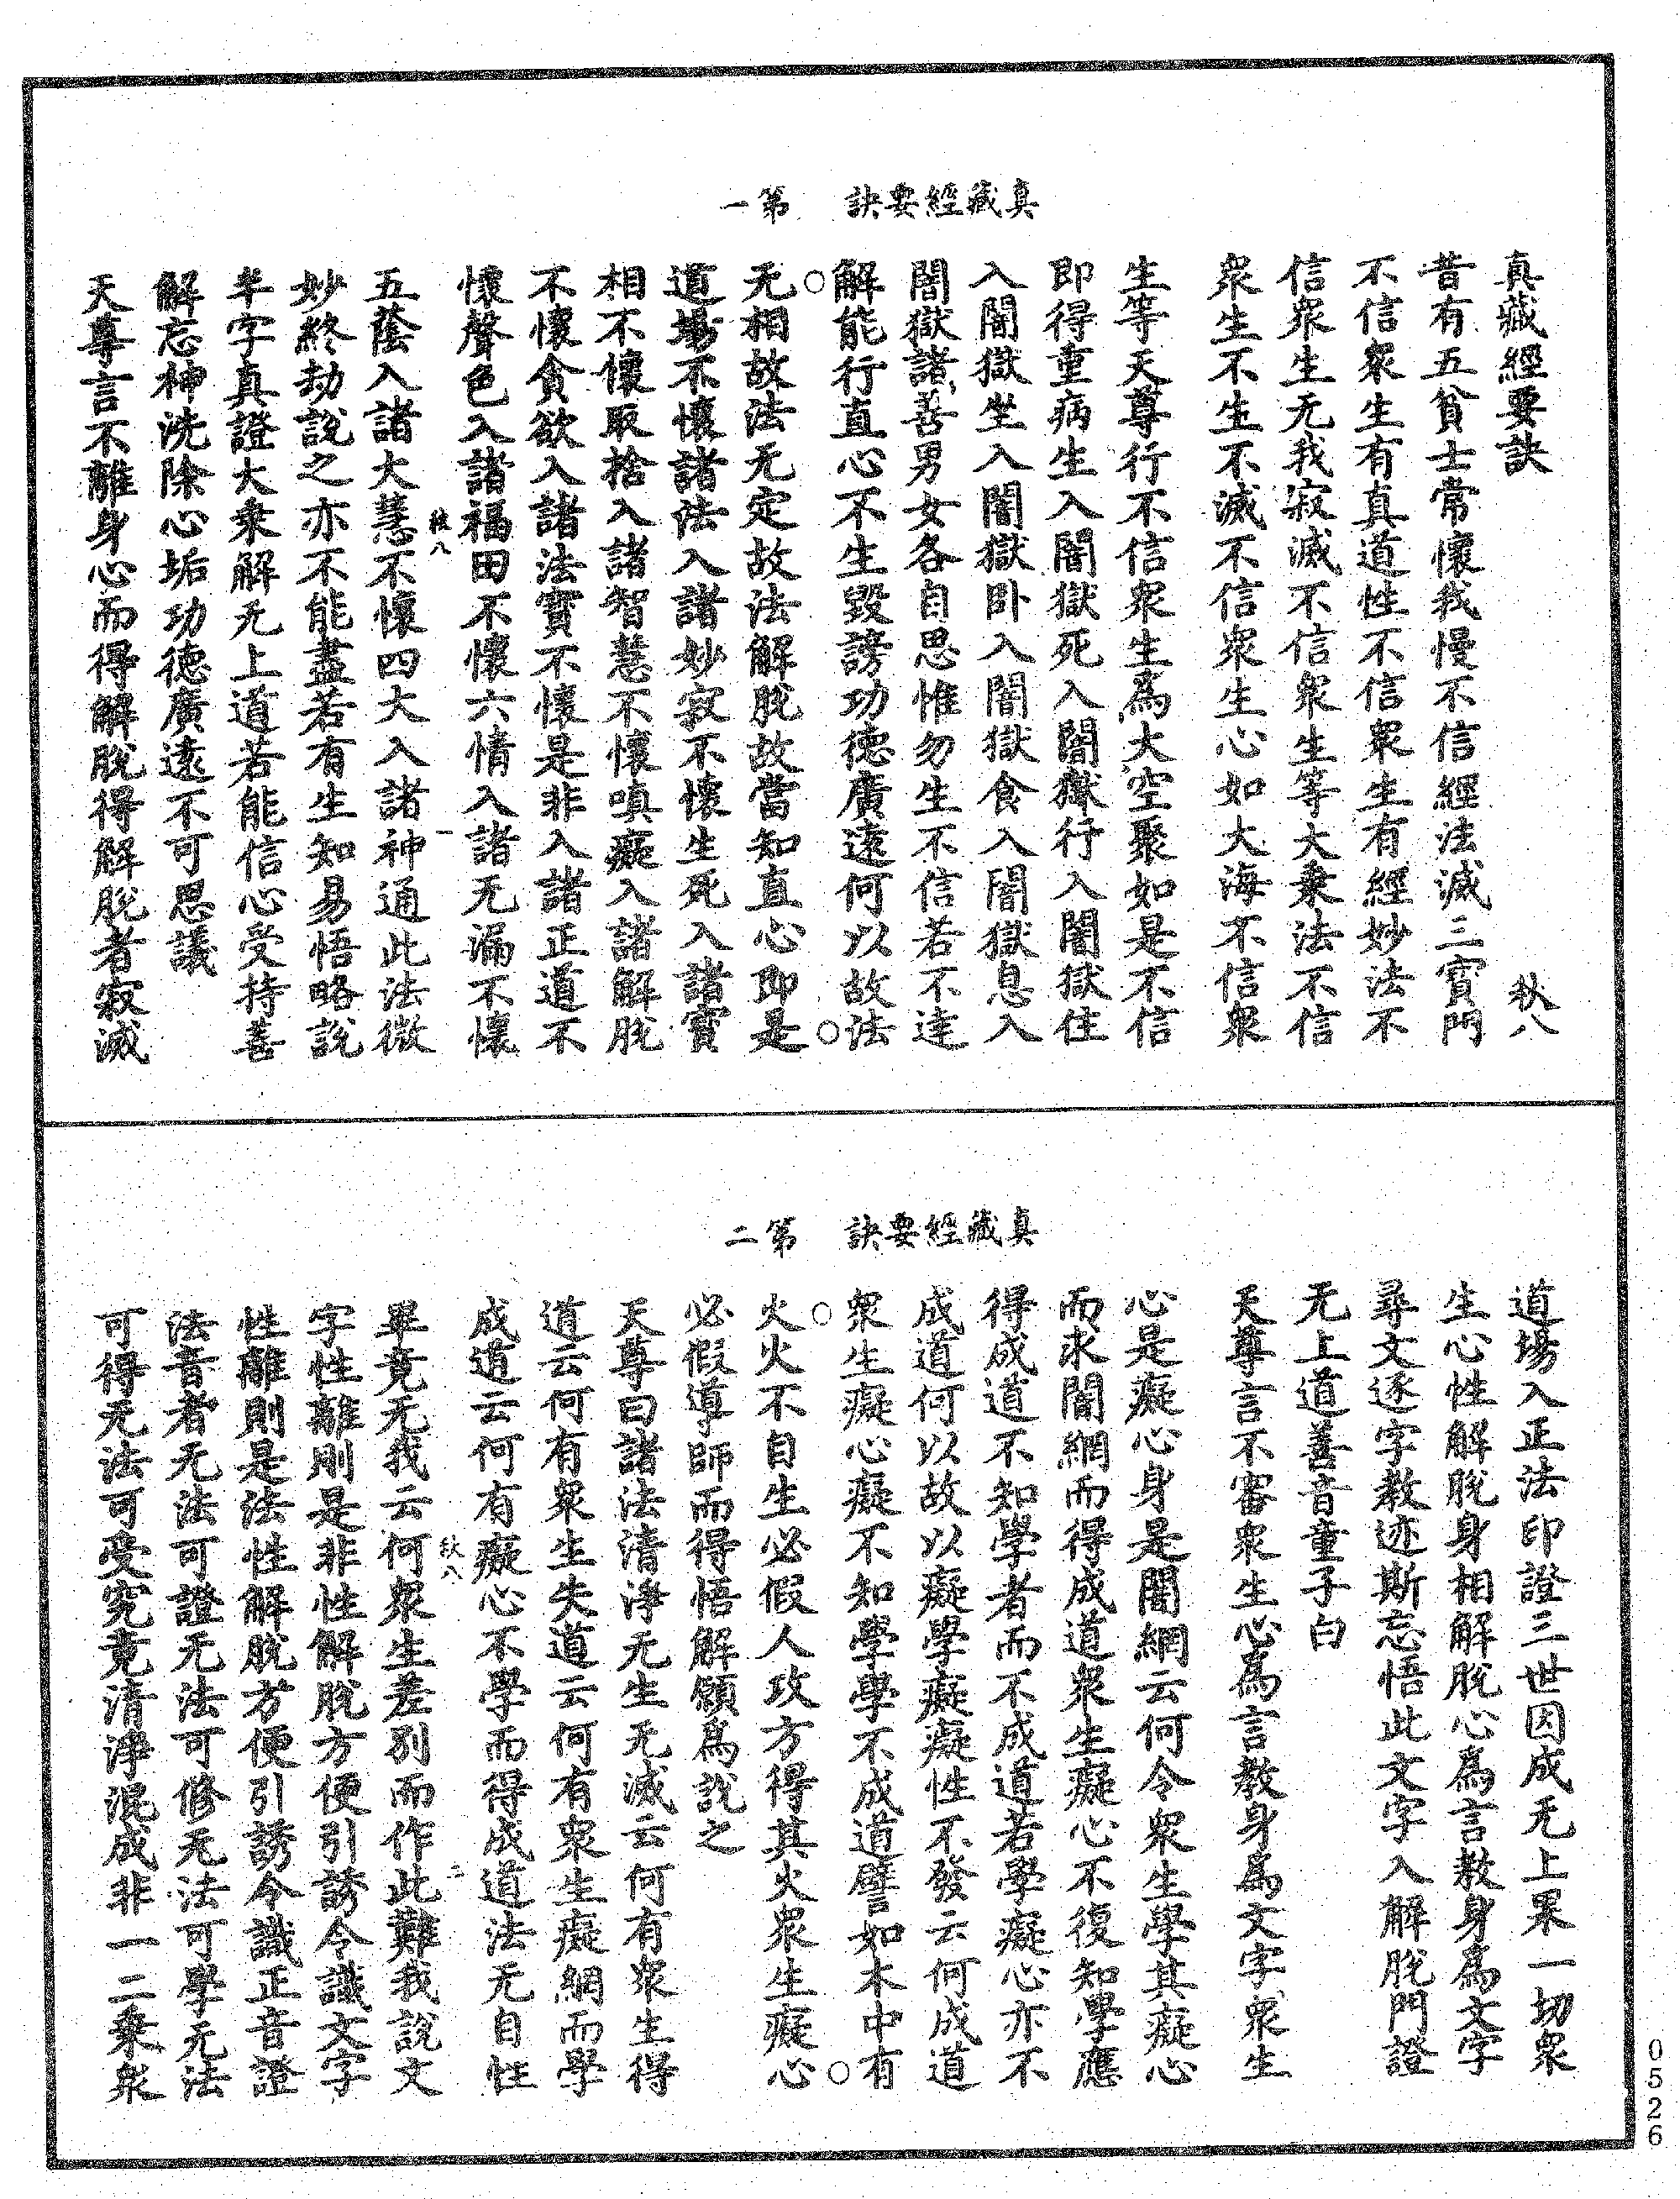 真藏經要訣　第一
真藏經要訣　秋八
昔有五貧士常懷我慢不信經法滅三寶門
不信衆生有真道性不信衆生有經妙法不
信衆生无我寂滅不信衆生等大乗法不信
衆生不生不滅不信衆生心如大海不信衆
生等天尊行不信衆生爲大空聚如是不信
即得重病生入闇獄死入闇獄行入闇獄住
入闇獄坐入闇獄卧入闇獄食入闇獄息入
闇獄諸善男女各自思惟勿生不信若不達
解能行直心不生毀謗功德廣遠何以故法
无相故法无定故法解脫故當知直心即是
道場不懷諸法入諸妙寂不懷生死入諸寶
相不懷取捨入諸智慧不懷嗔癡入諸解脫
不懷貪欲入諸法寶不懷是非入諸正道不
懷聲色入諸福田不懷六情入諸无漏不懷
秋八　一
五蔭入諸大慧不懷四大入諸神通此法微
妙終劫說之亦不能盡若有生知易悟略說
半字真證大乗解无上道若能信心受持善
解忘神洗除心垢功德廣遠不可思議
天尊言不離身心而得解脫得解脫者寂滅
真藏經要訣　第二
道場入正法印證三世因成无上果一切衆
生心性解脫身相解脫心爲言教身爲文字
尋文逐字教迹斯忘悟此文字入解脫門證
无上道善音童子白
天尊言不審衆生心爲言教身爲文字衆生
心是癡心身是闇網云何令衆生學其癡心
而求闇網而得成道衆生癡心不復知學應
得成道不知學者而不成道若學癡心亦不
成道何以故以癡學癡癡性不發云何成道
衆生癡心癡不知學學不成道譬如木中有
火火不自生必假人攻方得其火衆生癡心
必假導師而得悟解願爲說之
天尊曰諸法清淨无生无滅云何有衆生得
道云何有衆生失道云何有衆生癡網而學
成道云何有癡心不學而得成道法无自性
秋八　二
畢竟无我云何衆生差別而作此難我說文
字性離則是非性解脫方便引誘令識文字
性離則是法性解脫方便引誘令識正音證
法音者无法可證无法可修无法可學无法
可得无法可受究竟清淨混成非一二乗衆
0526